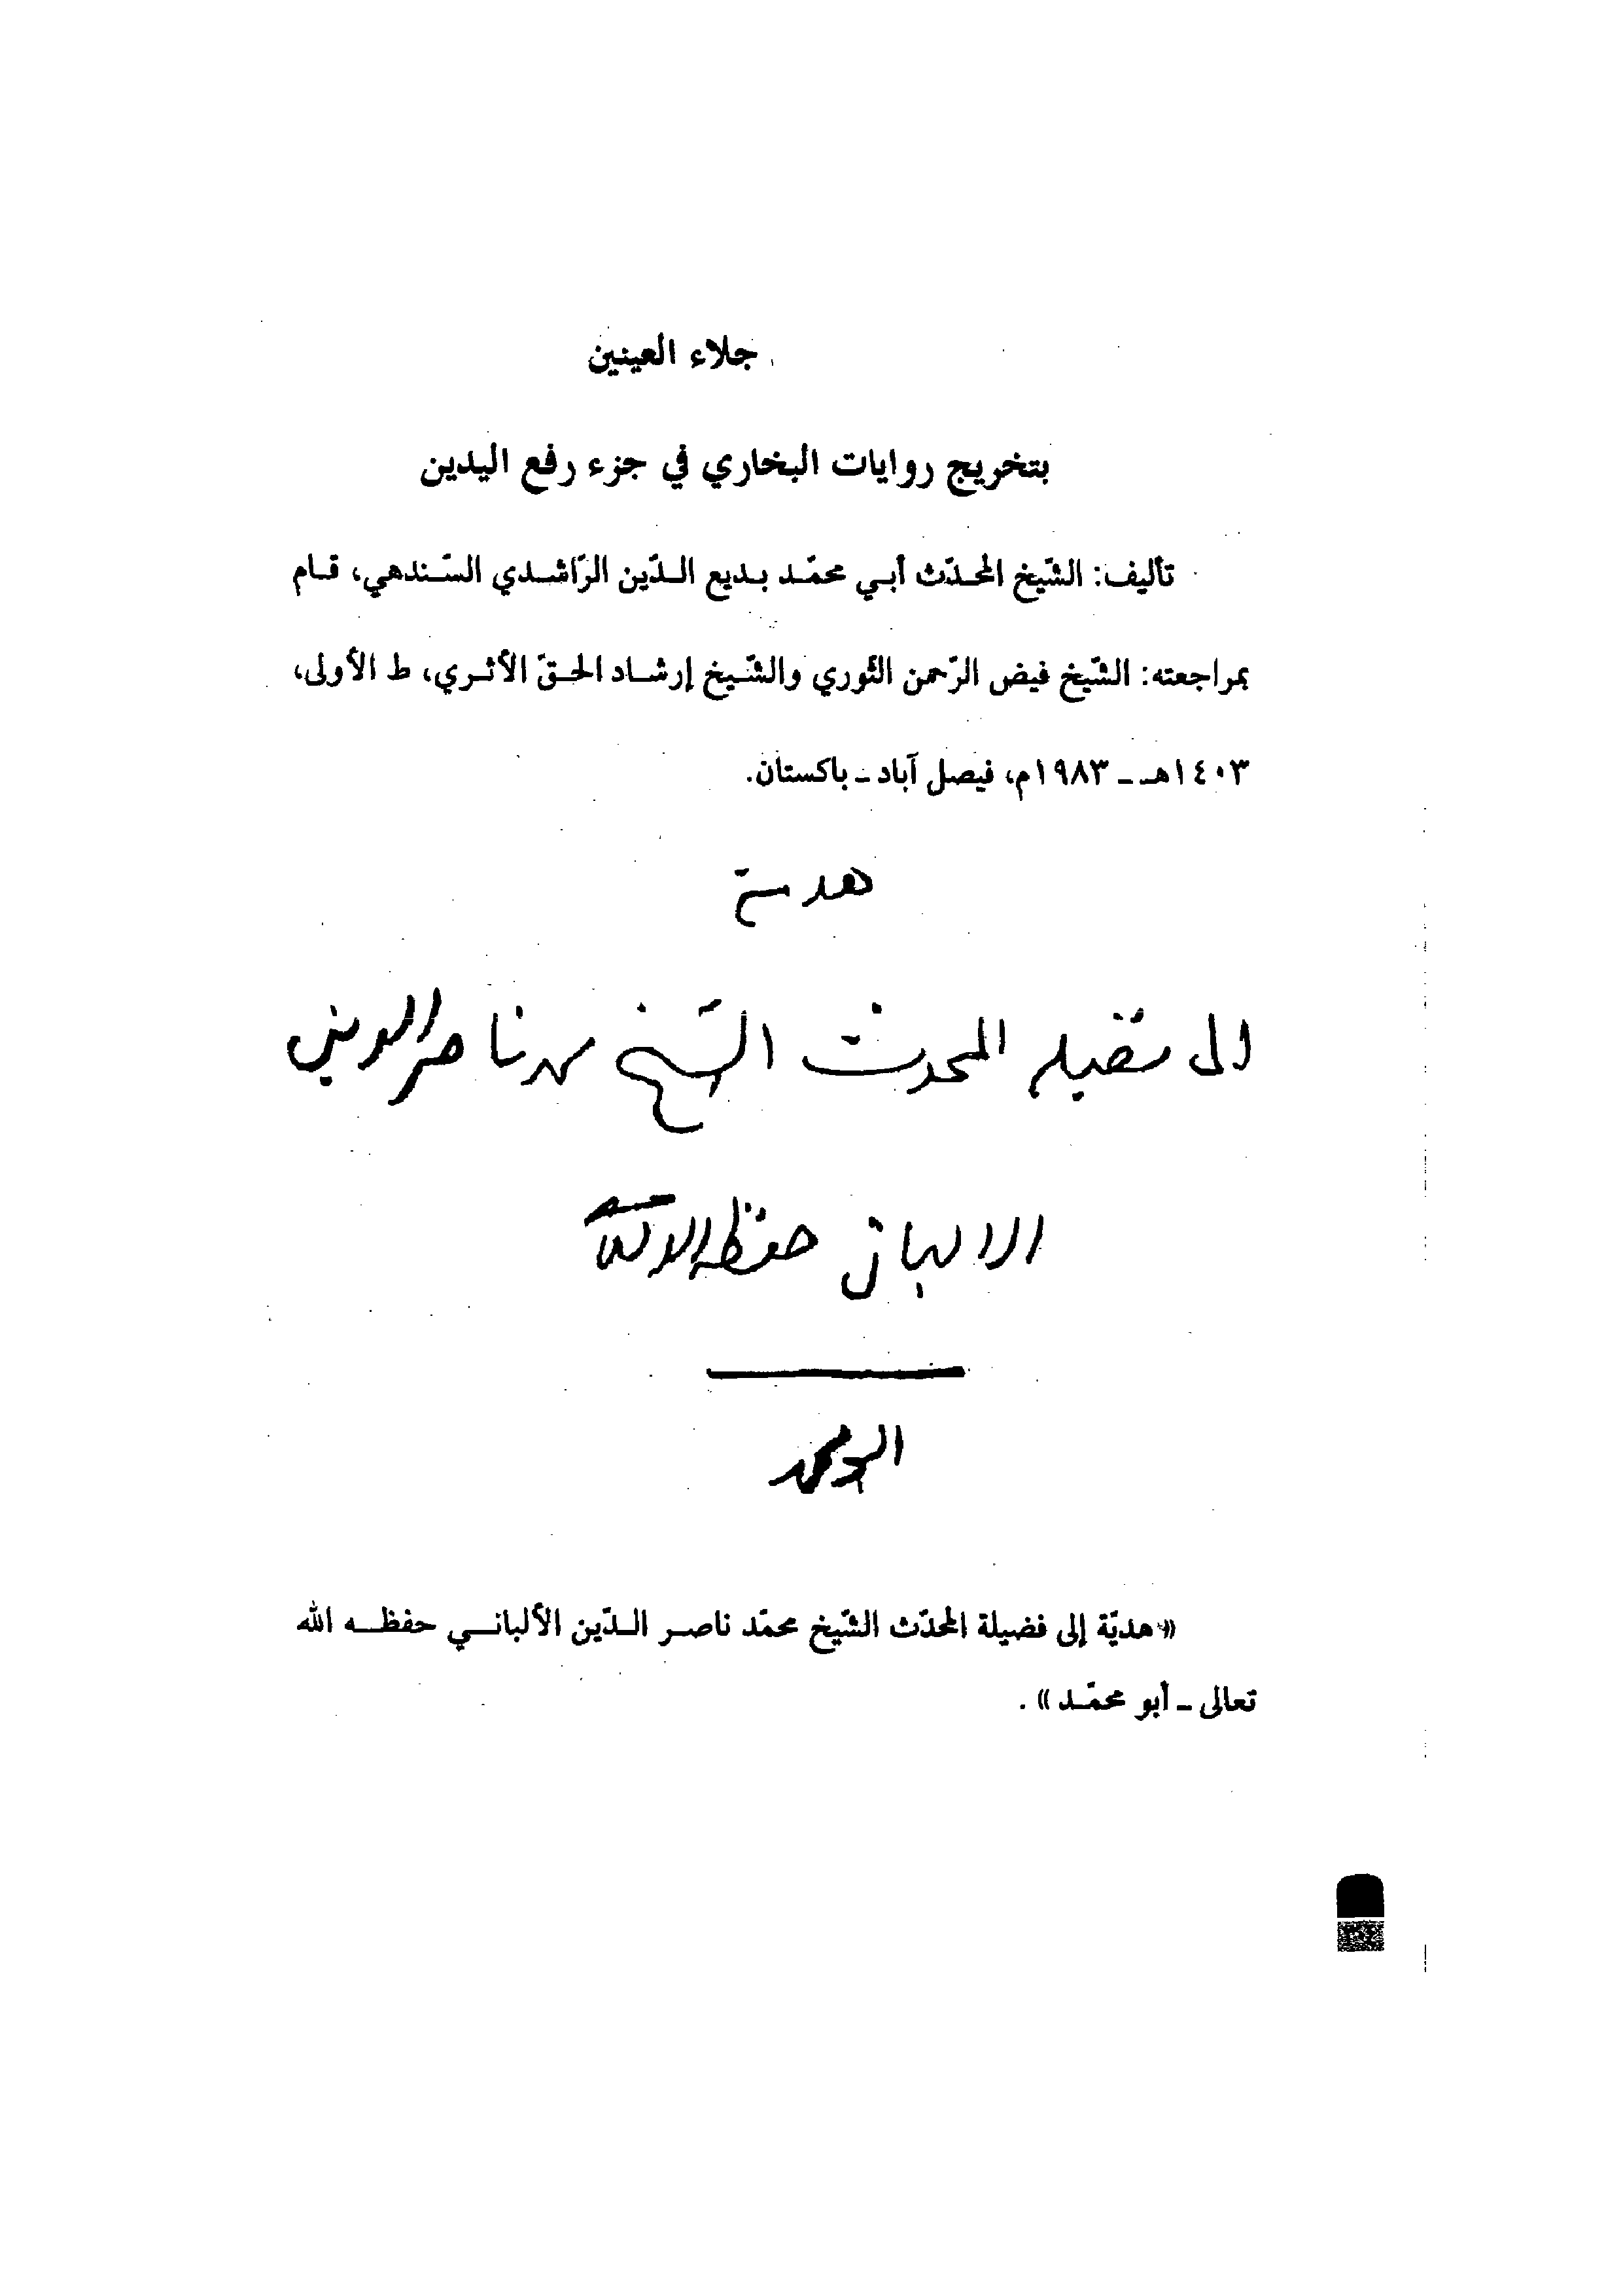 جلاء العينين
بتخريج روايات البخاري في جزء رفع اليدين
تأليف: الشّيخ المحدّث أبي محمّد بديع الدّين الرّاشدي السّندهي، قام
بمراجعته: الشّيخ فيض الرّحمن الثّوري والشّيخ إرشاد الحقّ الأثري، ط الأولى،
١٤٠٣هـ ـ ١٩٨٣م، فيصل آباد ـ باكستان.
هدية
الى فضيلة المحدث الشيخ محمد ناصر الدين
الالباني حفظه الله تعالى
ابو محمد
«هديّة إلى فضيلة المحدّث الشّيخ محمّد ناصر الدّين الألباني حفظه الله
تعالى ـ أبو محمّد» .